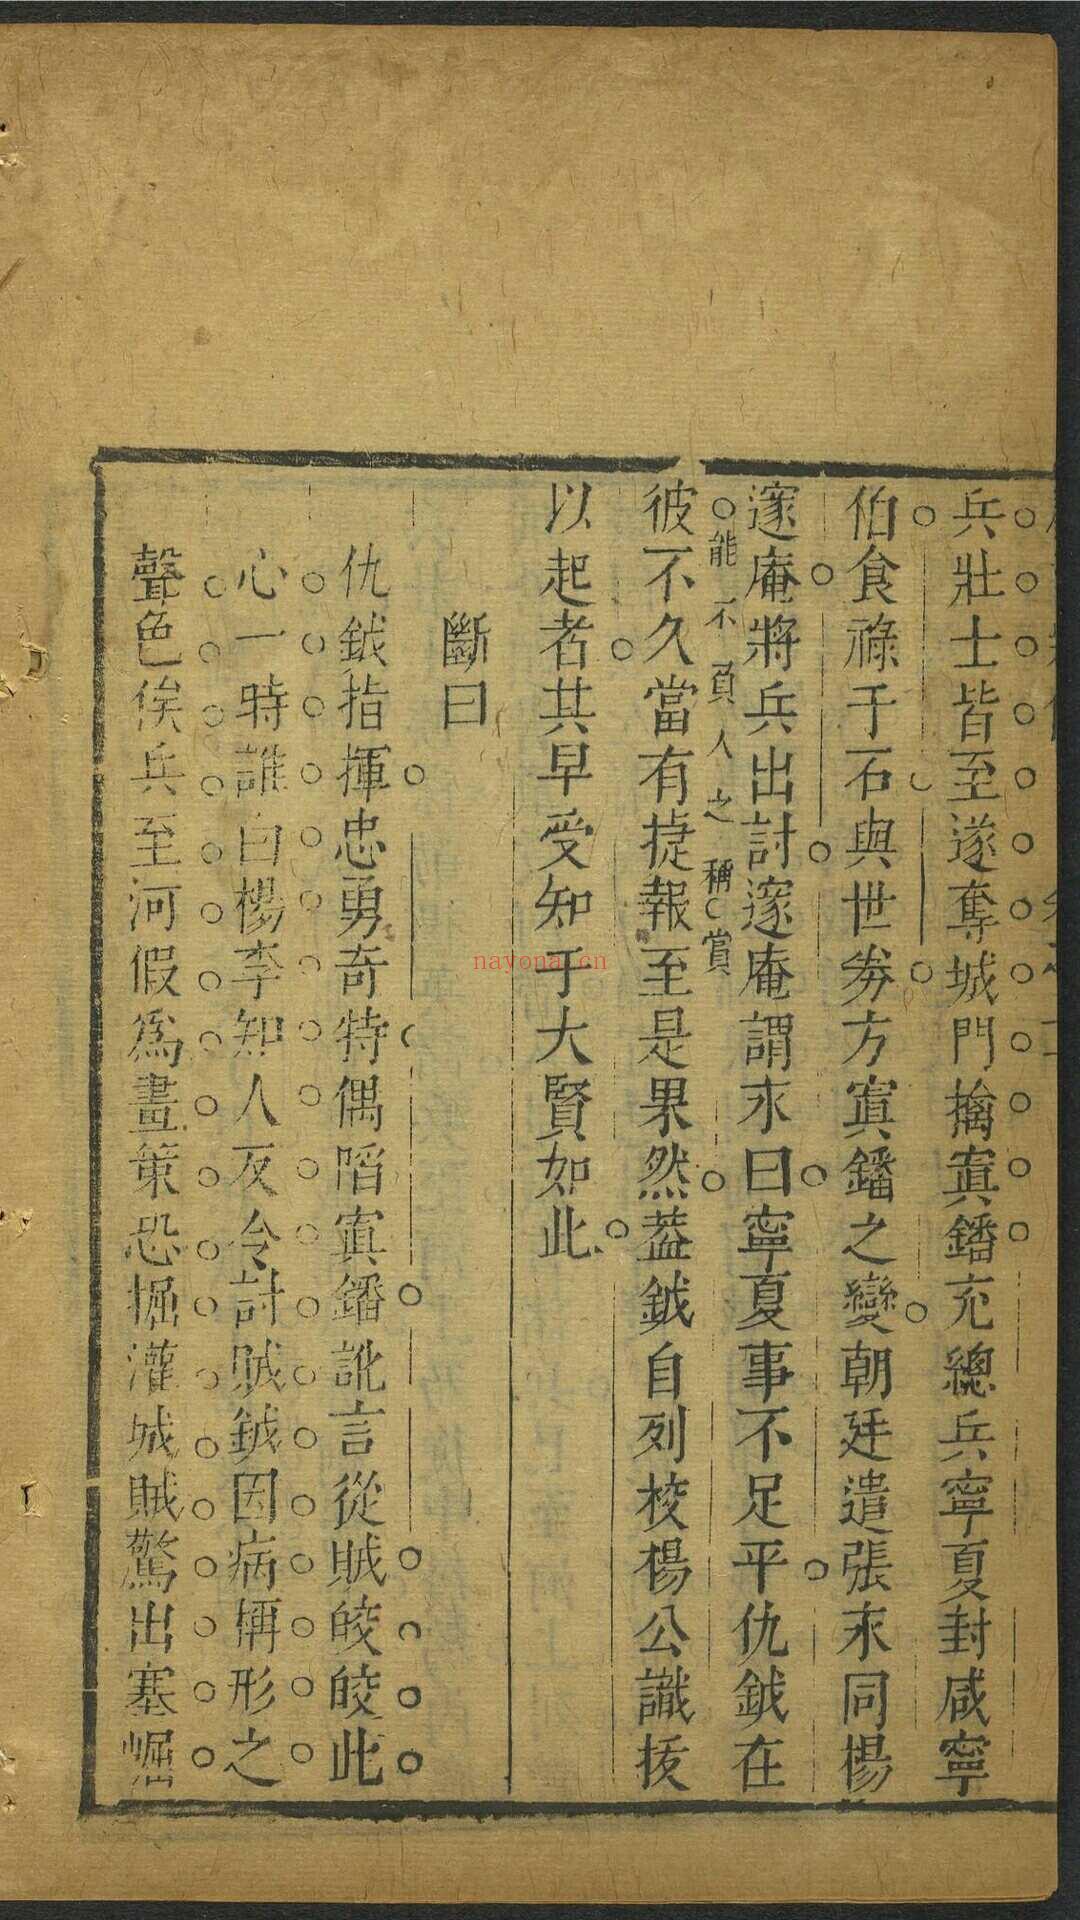 兵壯士皆至遂奪城門擒寘鐇充總兵寧夏封咸寧
伯食祿于石與世券方寘鐇之變朝廷遣張永同楊
邃庵將兵出討邃庵謂永曰寧夏事不足平仇鉞在
能不負人之稱賞
彼不久當有捷報至是果然葢鉞自列校楊公識拔
以起者其早受知于大賢如此
斷曰
仇鉞指揮忠勇奇特偶陷寘鐇訛言從賊皎皎此
心一時誰白楊李知人反令討賊鉞因病稱形之
聲色俟兵至河假為畫策恐掘灌城賊驚出塞崛
nayona.cn